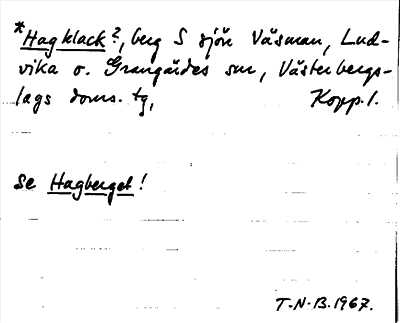 *Hagklack?, berg S sjön Väsman, Lud-
vika o. Grangärdes snr, Västerbergs-
lags doms. tg, Kopp. l.
se Hagberget!
T-N-B. 1967.